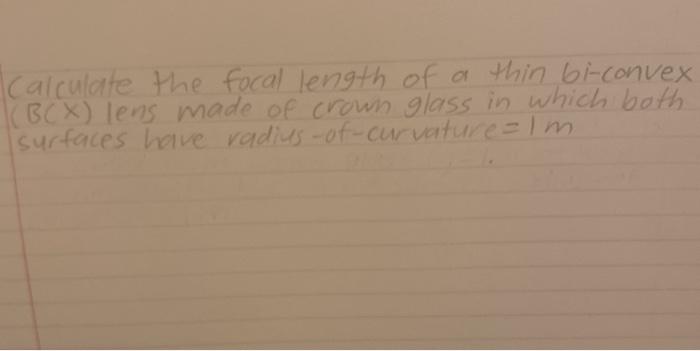 Calculate the focal length of a thin bi-convex
(BCX) lens made of crown glass in which both
surfaces have radius-of-curvature = 1 m